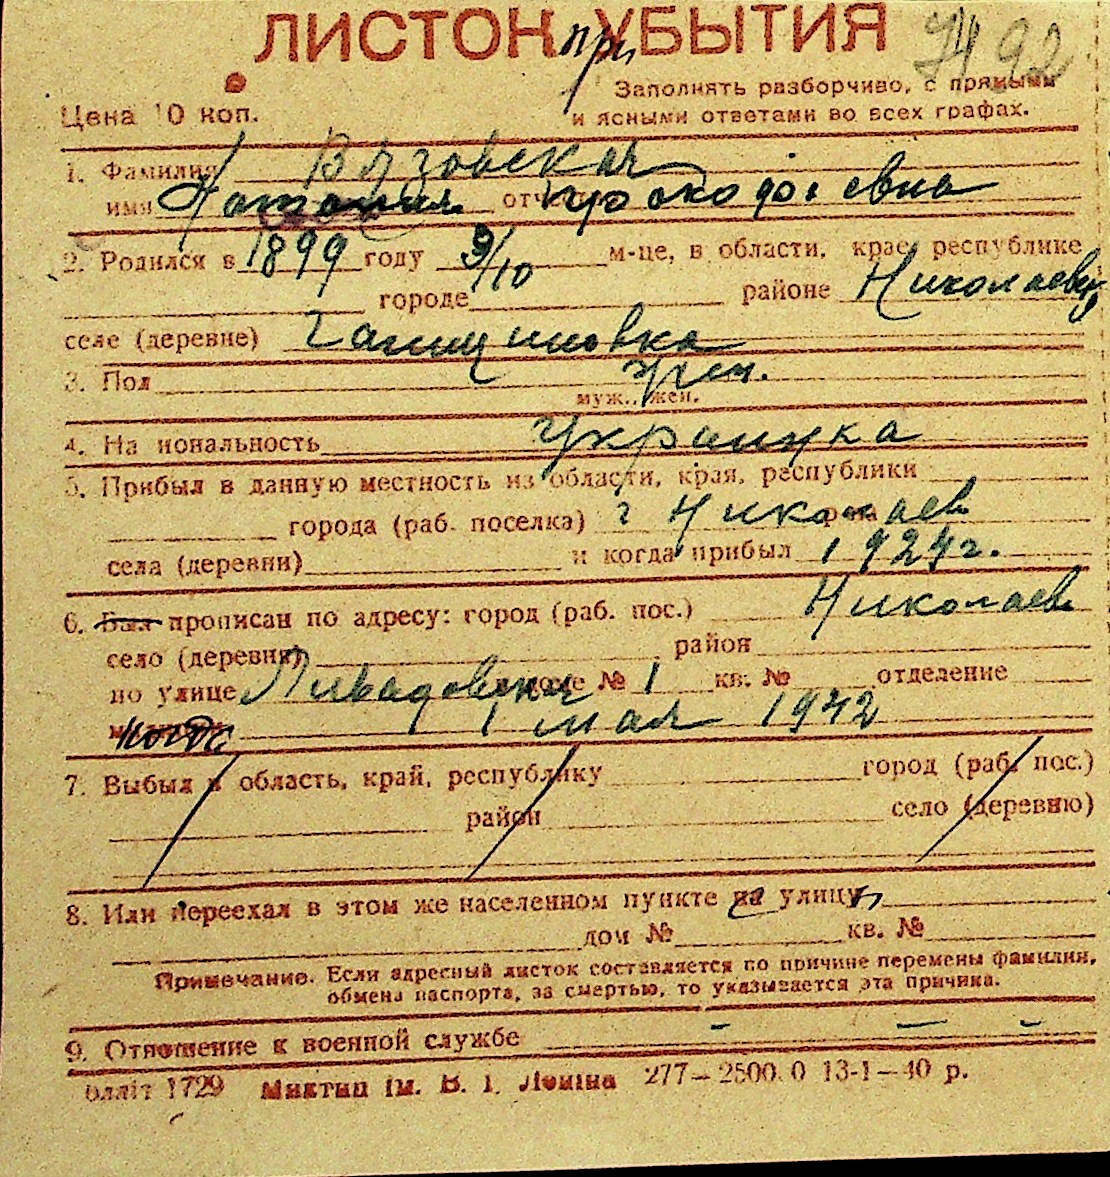 ЛИСТОК при УБЫТИЯ 7492
Заполнять разборчиво, с прямыми
Цена 10 коп. и ясными ответами во всех графах.
1. Фамилия Вязовская
имя Наталия отчество Прокофьевна
2. Родился в 1899 году 9/10 м-це, в области, крае, республике
городе районе Николаевск,
селе (деревне)
3. Пол жен.
муж., жен.
4. Национальность Украинка
5. Прибыл в данную местность из области, края, республики
города (раб. поселка) г Николаев
села (деревни) и когда прибыл 1924 г.
6. Был прописан по адресу: город (раб. пос.) Николаев
село (деревня) район
по улице доме № 1 кв. № отделение
когда 1 мая 1942
7. Выбыл в область, край, республику город (раб. пос.)
район село (деревню)
8. Или переехал в этом же населенном пункте на улицу
дом № кв. №
Примечание. Если адресный листок составляется по причине перемены фамилии,
обмена паспорта, за смертью, то указывается эта причина.
9. Отношение к военной службе – – –
Оллiт 1729 ім. В. І. Леніна 277–2500.0 13-1–40 р.